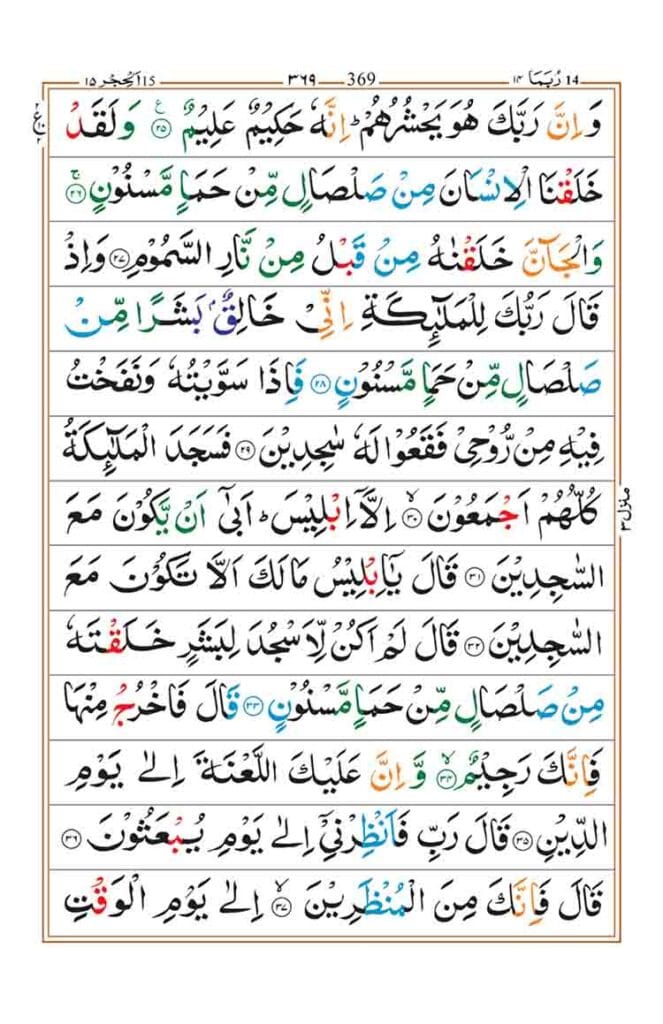 ١٤ رُبَمَا 14 369 ٣٦٩ اَلْحِجْر 15 ١٥
وَ اِنَّ رَبَّكَ هُوَ يَحْشُرُهُمْ ؕ اِنَّهٗ حَكِيْمٌ عَلِيْمٌ ﴿٢٥﴾ وَ لَقَدْ
خَلَقْنَا الْاِنْسَانَ مِنْ صَلْصَالٍ مِّنْ حَمَاٍ مَّسْنُوْنٍ ﴿٢٦﴾
وَالْجَآنَّ خَلَقْنٰهُ مِنْ قَبْلُ مِنْ نَّارِ السَّمُوْمِ ﴿٢٧﴾ وَاِذْ
قَالَ رَبُّكَ لِلْمَلٰٓئِكَةِ اِنِّىْ خَالِقٌۢ بَشَرًا مِّنْ
صَلْصَالٍ مِّنْ حَمَاٍ مَّسْنُوْنٍ ﴿٢٨﴾ فَاِذَا سَوَّيْتُهٗ وَنَفَخْتُ
فِيْهِ مِنْ رُّوْحِىْ فَقَعُوْا لَهٗ سٰجِدِيْنَ ﴿٢٩﴾ فَسَجَدَ الْمَلٰٓئِكَةُ
كُلُّهُمْ اَجْمَعُوْنَ ﴿٣٠﴾ اِلَّاۤ اِبْلِيْسَ ؕ اَبٰٓى اَنْ يَّكُوْنَ مَعَ
السّٰجِدِيْنَ ﴿٣١﴾ قَالَ يٰۤاِبْلِيْسُ مَا لَكَ اَلَّا تَكُوْنَ مَعَ
السّٰجِدِيْنَ ﴿٣٢﴾ قَالَ لَمْ اَكُنْ لِّاَسْجُدَ لِبَشَرٍ خَلَقْتَهٗ
مِنْ صَلْصَالٍ مِّنْ حَمَاٍ مَّسْنُوْنٍ ﴿٣٣﴾ قَالَ فَاخْرُجْ مِنْهَا
فَاِنَّكَ رَجِيْمٌ ﴿٣٤﴾ وَّ اِنَّ عَلَيْكَ اللَّعْنَةَ اِلٰى يَوْمِ
الدِّيْنِ ﴿٣٥﴾ قَالَ رَبِّ فَاَنْظِرْنِىْۤ اِلٰى يَوْمِ يُبْعَثُوْنَ ﴿٣٦﴾
قَالَ فَاِنَّكَ مِنَ الْمُنْظَرِيْنَ ﴿٣٧﴾ اِلٰى يَوْمِ الْوَقْتِ
منزل ٣